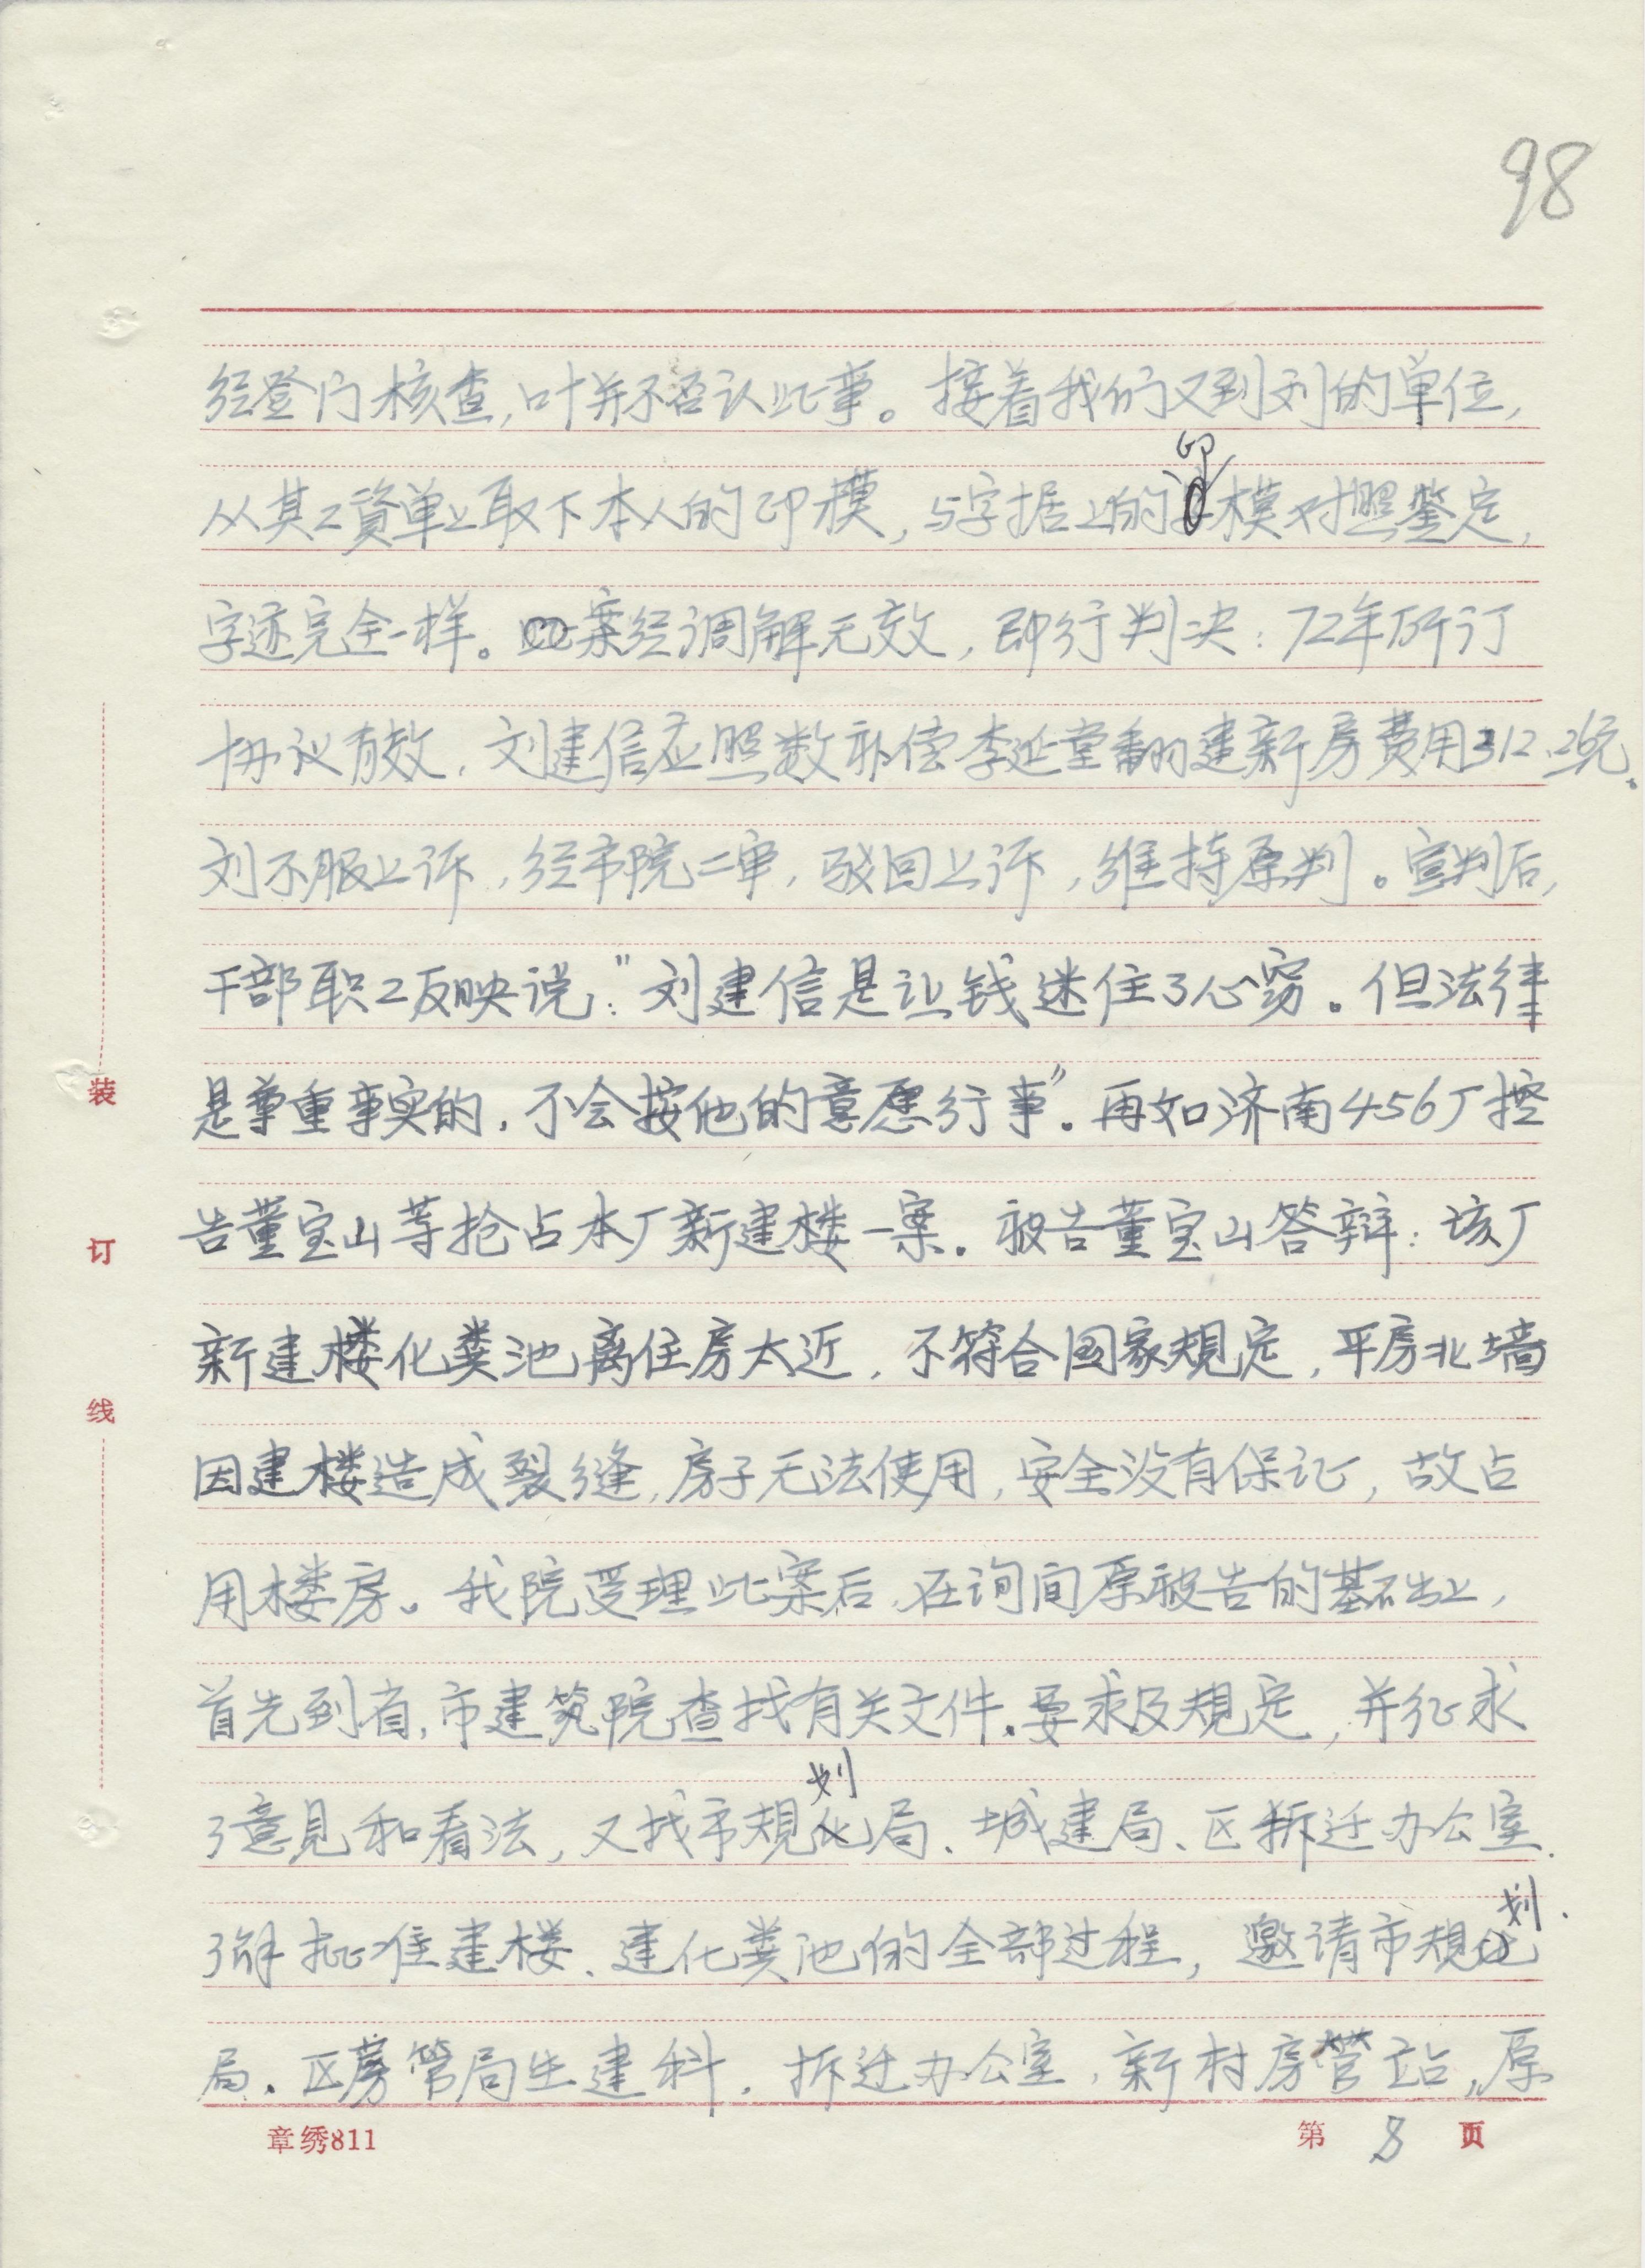 98
经登门核查,叶并不否认此事。接着我们又到刘的单位,
从其工資单上取下本人的印模,与字据上的印模对照鉴定,
字迹完全一样。案经调解无效,即行判决:72年所订
协议有效,刘建信应照数补偿李延堂翻建新房费用312.26元。
刘不服上诉,经市院二审,驳回上诉,维持原判。宣判后,
干部职工反映说:"刘建信是让钱迷住了心窍。但法律
是尊重事实的,不会按他的意愿行事"。再如济南456厂控
告董宝山等抢占本厂新建楼一案。被告董宝山答辩:该厂
新建楼化粪池离住房太近,不符合国家規定,平房北墙
因建楼造成裂缝,房子无法使用,安全没有保证,故占
用楼房。我院受理此案后,在询问原被告的基础上,
首先到省,市建筑院查找有关文件.要求及規定,并征求
了意見和看法,又找市規划局、城建局、区拆迁办公室.
了解批准建楼、建化粪池的全部过程,邀请市規划
局、区房管局生建科、拆迁办公室、新村房管站,原
装
订
线
章绣811
第 8 页